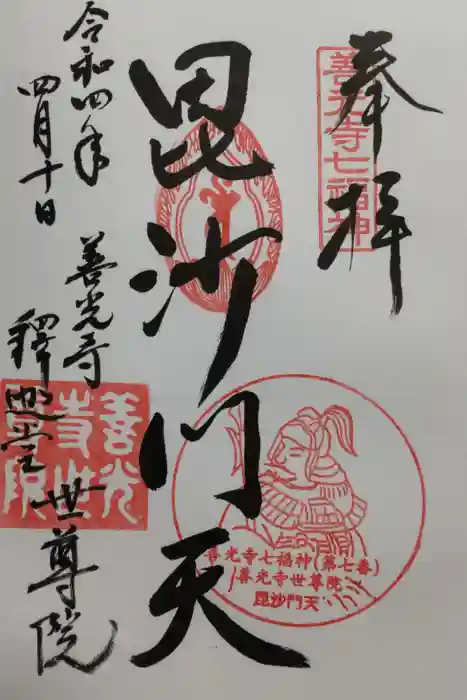 奉拝
善光寺七福神
毘沙門天
令和四年
四月十日
善光寺
釋迦堂
世尊院
善光寺世尊院
善光寺七福神(第七番)
善光寺世尊院
毘沙門天